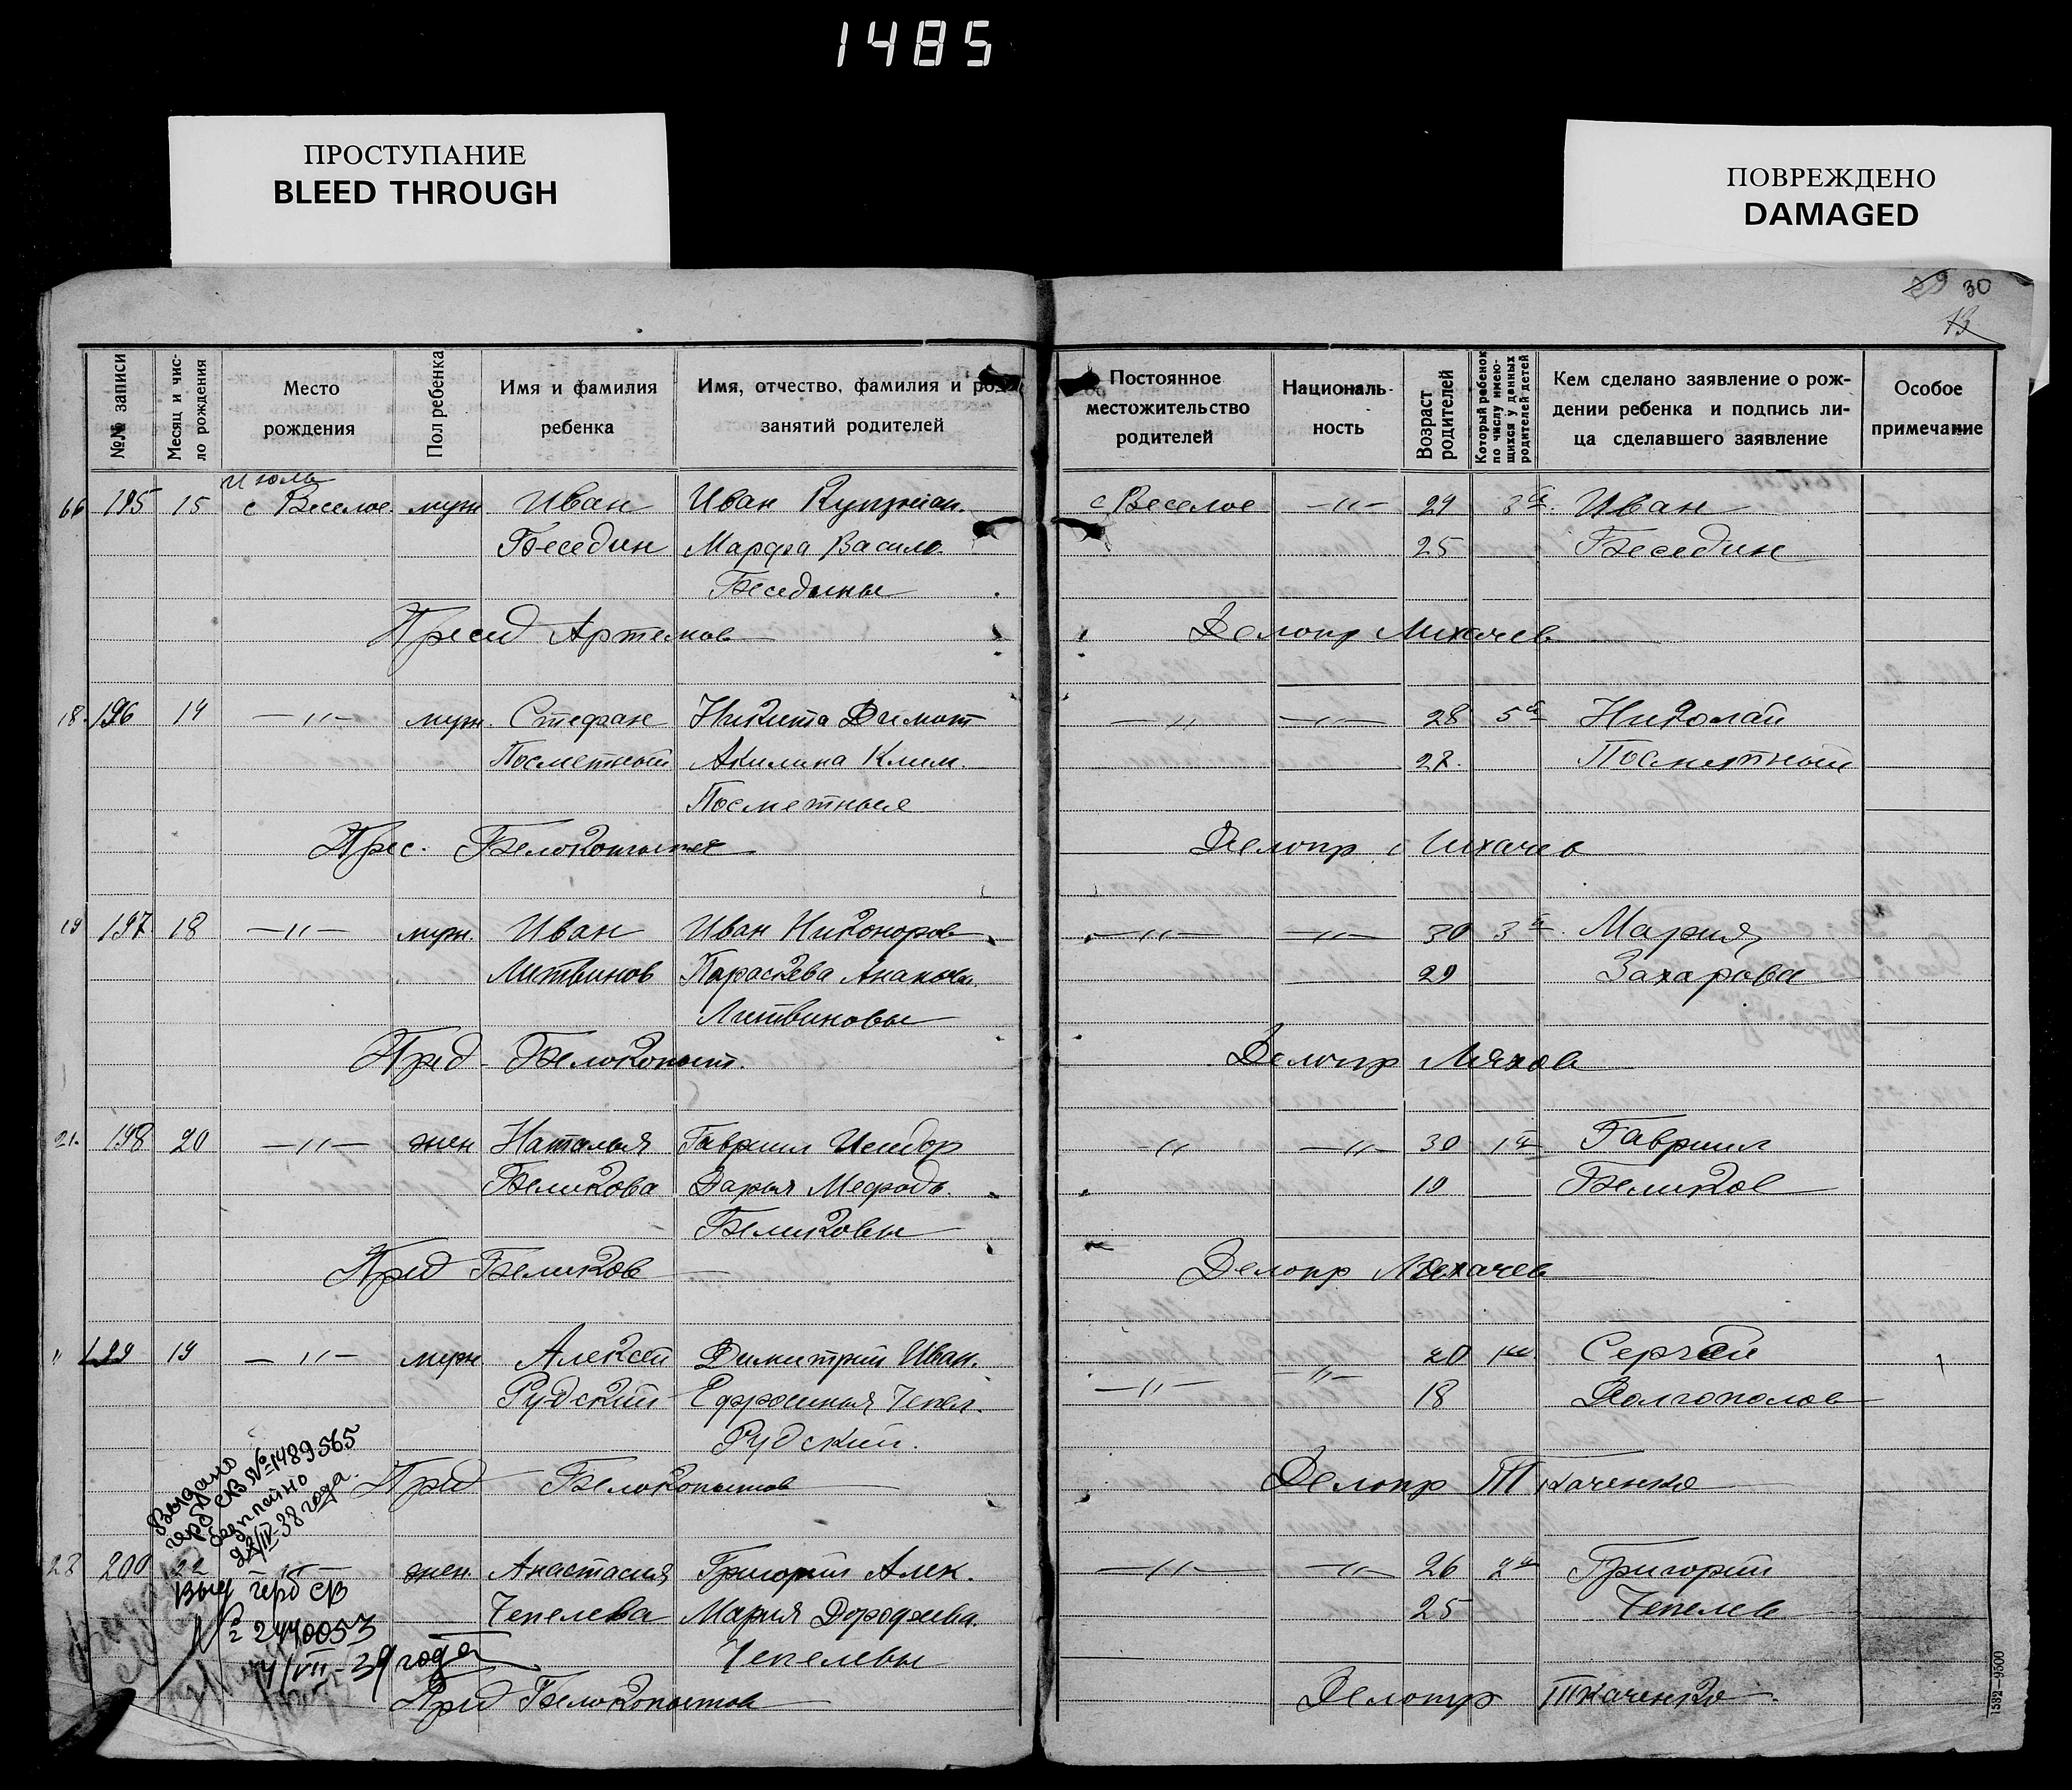 1485
ПРОСТУПАНИЕ
BLEED THROUGH
ПОВРЕЖДЕНО
DAMAGED
29 30
13
№№ записи
Месяц и чис-
ло рождения
Место
рождения
Пол ребенка
Имя и фамилия
ребенка
Имя, отчество, фамилия и род
занятий родителей
Постоянное
местожительство
родителей
Националь-
ность
Возраст
родителей
Который ребенок
по числу имею-
щихся у данных
родителей детей
Кем сделано заявление о рож-
дении ребенка и подпись ли-
ца сделавшего заявление
Особое
примечание
Июль
195 15 с Веселое муж Иван Иван Куприян. с Веселое —"— 29 3й Иван
Беседин Марфа Васило 25 Беседин
Беседины
Пресед Артемов Делопр Лихачев
18. 196 14 —"— муж. Стефан Никита —"— —"— 28 5й Николай
Посметный Акилина Клим. 27. Посметный
Посметные
Прес. Делопр Лихачев
19 197 18 —"— муж. Иван Иван Никоноров —"— —"— 30 3й Мария
Литвинов Параскева 29 Захарова
Литвиновы
Пред. Белокопыт. Делопр Ляхов
21. 198 20 —"— жен Наталья Гавриил Исидор —"— —"— 30 1й Гавриил
Беликова Дарья Мефодь. 19 Беликов
Беликовы
Пред Беликов Делопр Лихачев
" 199 19 —"— муж Алексей Димитрий Иван. —"— —"— 20 1й Сергей
Рудский Ефросиния 18 Долгополов
Рудский.
Пред Белокопытов Делопр Ткаченко
Выдано
герб СКВ № 1489565
бесплатно
22/IV-38 года.
23 200 22 —"— жен. Анастасия Григорий Алек. —"— —"— 26 2й Григорий
Чепелева Мария Дорофеева. 25 Чепелев
Чепелевы
Выд герб СВ
№ 2440053
4/VII-39 года
Пред Белокопытов Делопр Ткаченко.
1532—9500